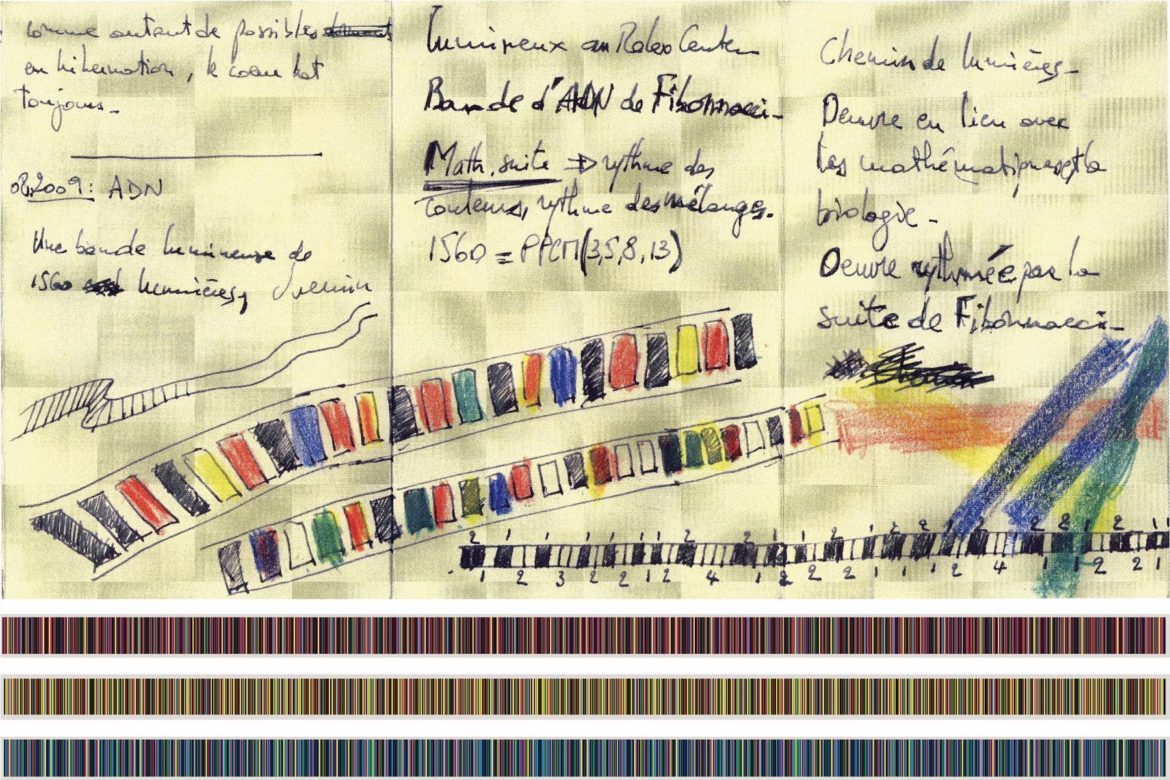 comme autant de possibles
en hibernation, le coeur bat
toujours_
08.2009: ADN
Une bande lumineuse de
1560 lumières, chemin
lumineux au Rolex Center
Bande d'ADN de Fibonnacci_
Math, suite ⇒ rythme des
couleurs, rythme des mélanges.
1560 = PPCM(3,5,8,13)
Chemin de lumières_
Oeuvre en lien avec
les mathématiques et la
biologie_
Oeuvre rythmée par la
suite de Fibonnacci_